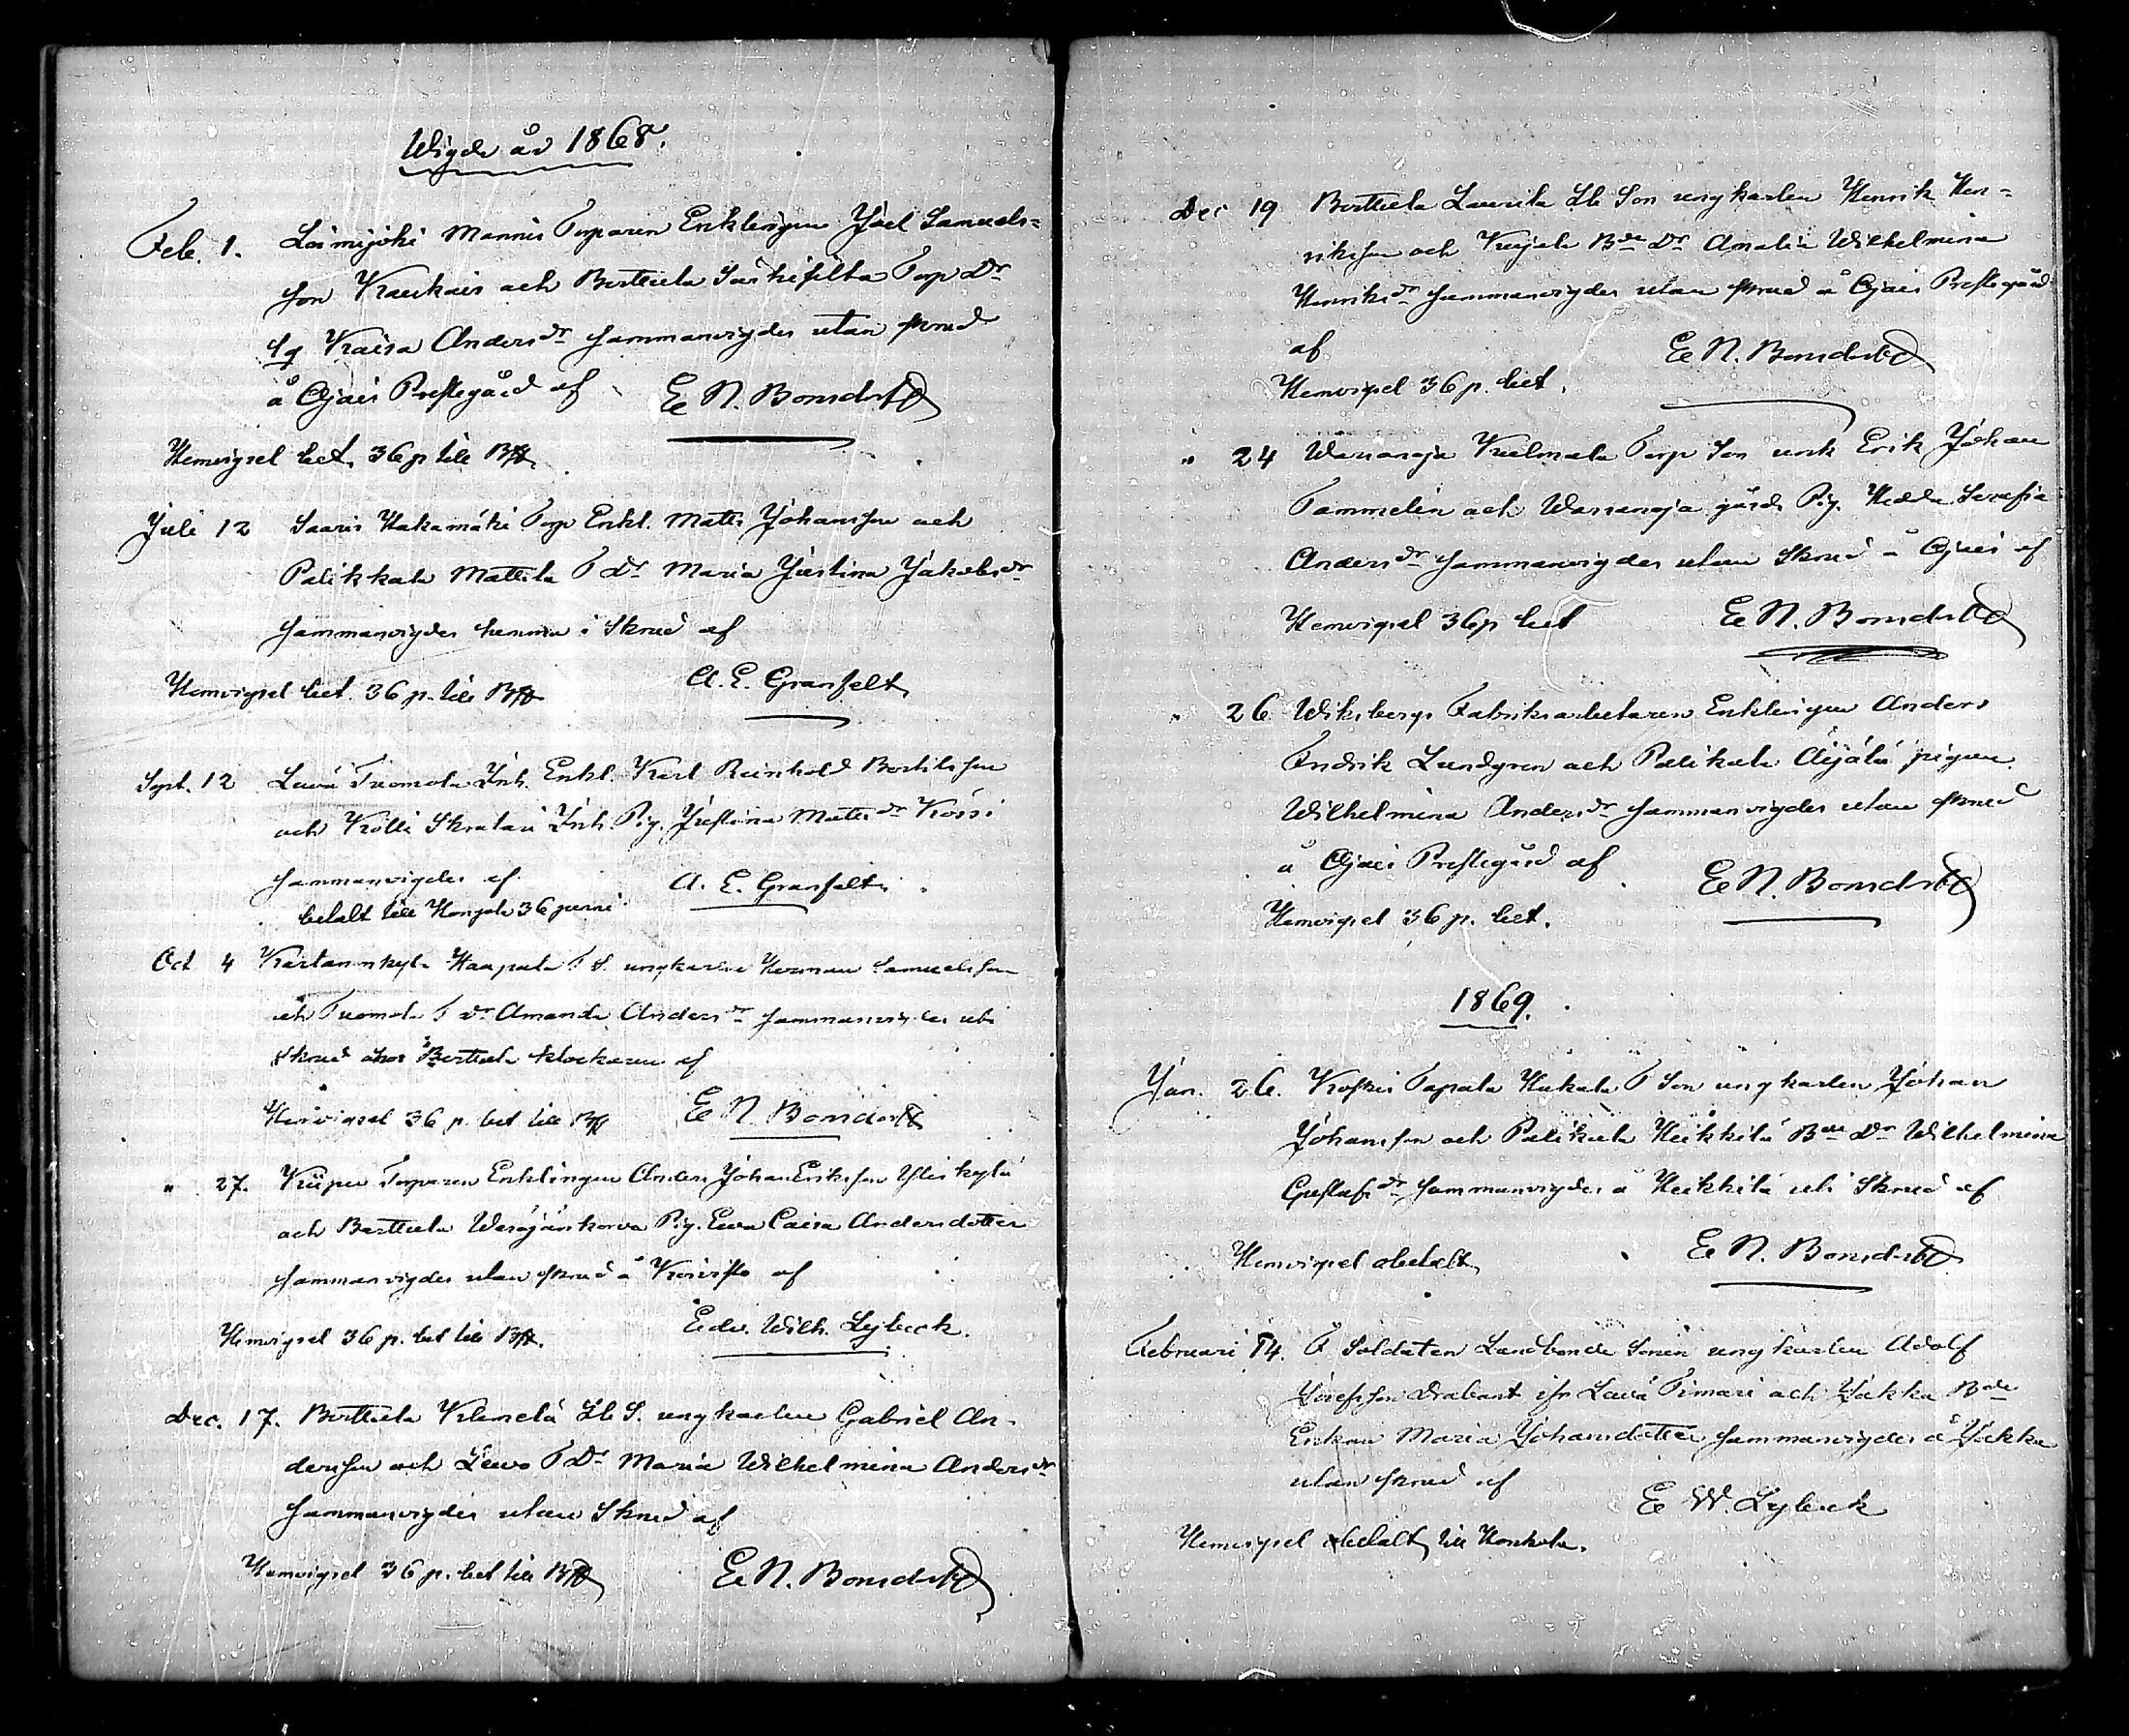 Wigde år 1868.
Feb. 1. Loimijoki Mannis Torparen Enklingen Joel Samuels=
son Kaukais och Berttula Särkisilta Torp Dr
Kaisa Andersdr sammanvigdes utan skrud
å Ojais Prestegård af E N. Bonsdorff
Hemvigsel bet. 36 p till
Juli 12 Saaris Hakamäki Torp Enkl. Matts Johansson och
Palikkala Mattila T Dr Maria Justina Jakobsdr
sammanvigdes hemma i Skrud af
Hemvigsel bet. 36 p. till A. E. Granfelt
Sept. 12 Tuomola Inh. Enkl. Karl Reinhold Bertilsson
och Kölli Inh. Pig. Justina Mattsdr
sammanvigdes af A. E. Granfelt
betalt till 36 penni
Oct 4 Kartanonkylä Haapala T S. ungkarlen Herman Samuelsson
och Tuomola T Dr Amanda Andersdr sammanvigdes uti
Skrud hos Berttula klockaren af
Hemvigsel 36 p. bet till E N. Bonsdorff
" 27. Torparen Enklingen Anders Johan Eriksson Yliskylä
och Berttula Pig. Eva Caisa Andersdotter
sammanvigdes utan skrud å Koivisto af
Hemvigsel 36 p. bet till Edv. Wilh. Lybeck.
Dec. 17. Berttula Klemelä Lb S. ungkarlen Gabriel An-
dersson och T Dr Maria Wilhelmina Andersdr
sammanvigdes utan Skrud af
Hemvigsel 36 p. bet till E N. Bonsdorff
Dec 19 Berttula Laurila Lb Son ungkarlen Henrik Hen=
riksson och Kujala Bde Dr Amalia Wilhelmina
Henriksdr sammanvigdes utan skrud å Ojais Prestegård
af E N. Bonsdorff
Hemvigsel 36 p. bet.
" 24 Warsanoja Torp Son unk Erik Johan
Tammelin och Warsanoja gårds Pig. Hedda Serafia
Andersdr sammanvigdes utan Skrud å Ojais af
Hemvigsel 36 p bet E N. Bonsdorff
" 26 Wiksbergs Fabriksarbetaren Enklingen Anders
Fredrik Lundgren och Palikala Äijälä pigan
Wilhelmina Andersdr sammanvigdes utan skrud
å Ojais Prestegård af E N. Bonsdorff
Hemvigsel 36 p. bet.
1869.
Jan. 26. Koskis Tapala Hakala T Son ungkarlen Johan
Johansson och Palikala Heikkilä Bde Dr Wilhelmina
Gustafsdr sammanvigdes å Heikkilä uti Skrud af
Hemvigsel obetalt E N. Bonsdorff
Februari 14. F Soldaten Landbonde Sonen ungkarlen Adolf
Josefsson Drabant ifr och Jakka Bde
Enkan Maria Johansdotter sammanvigdes å Jakka
utan skrud af E W. Lybeck
Hemvigsel betalt till Honkola.